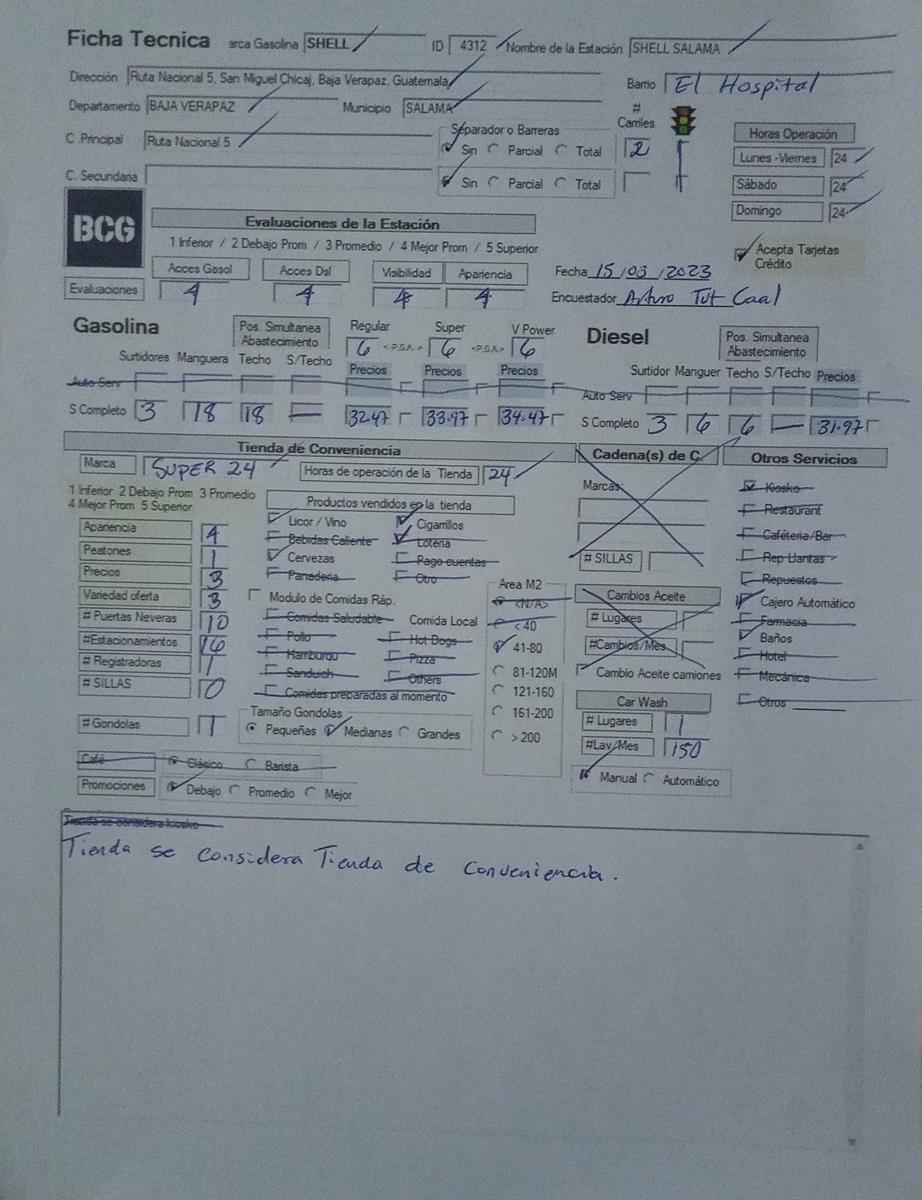 Ficha Tecnica arca Gasolina SHELL ID 4312 Nombre de la Estación SHELL SALAMA
Dirección Ruta Nacional 5, San Miguel Chicaj, Baja Verapaz, Guatemala Barrio El Hospital
Departamento BAJA VERAPAZ Municipio SALAMA # Carriles
C. Principal Ruta Nacional 5 Separador o Barreras Sin Parcial Total 2 Horas Operación
C. Secundaria Sin Parcial Total Lunes -Viernes 24
Sábado 24
Domingo 24
BCG Evaluaciones de la Estación
1 Inferior / 2 Debajo Prom / 3 Promedio / 4 Mejor Prom / 5 Superior Acepta Tarjetas Crédito
Acces Gasol Acces Dsl Visibilidad Apariencia Fecha 15/03/2023
Evaluaciones 4 4 4 4 Encuestador Arturo Tut Caal
Gasolina Pos. Simultanea Abastecimiento Regular Super V Power Diesel Pos. Simultanea Abastecimiento
6 <P.S.A> 6 <P.S.A> 6
Surtidores Manguera Techo S/Techo Precios Precios Precios Surtidor Manguer Techo S/Techo Precios
Auto Serv Auto Serv
S Completo 3 18 18 — 32.47 33.97 34.47 S Completo 3 6 6 — 31.97
Tienda de Conveniencia Cadena(s) de C. Otros Servicios
Marca SUPER 24 Horas de operación de la Tienda 24 Marcas:
1 Inferior 2 Debajo Prom 3 Promedio
4 Mejor Prom 5 Superior
Productos vendidos en la tienda
Apariencia 4 Licor / Vino Cigarrillos
Peatones 1 Bebidas Caliente Lotería
Precios 3 Cervezas Pago cuentas
Variedad oferta 3 Panaderia Otro
# Puertas Neveras 10 Modulo de Comidas Ráp.
#Estacionamientos 16 Comidas Saludable Comida Local
# Registradoras 1 Pollo Hot Dogs
# SILLAS 0 Hamburgu Pizza
Sanduich Others
Comidas preparadas al momento
# Gondolas 1 Tamaño Gondolas
Pequeñas Medianas Grandes
Café Clásico Barista
Promociones Debajo Promedio Mejor
Area M2
<N/A>
< 40
41-80
81-120M
121-160
161-200
> 200
# SILLAS
Cambios Aceite
# Lugares
#Cambios/Mes
Cambio Aceite camiones
Car Wash
# Lugares 1
#Lav/Mes 150
Manual Automático
Kiosko
Restaurant
Cafeteria/Bar
Rep Llantas
Repuestos
Cajero Automático
Farmacia
Baños
Hotel
Mecánica
Otros
Tienda se considera kiosko
Tienda se considera Tienda de conveniencia.